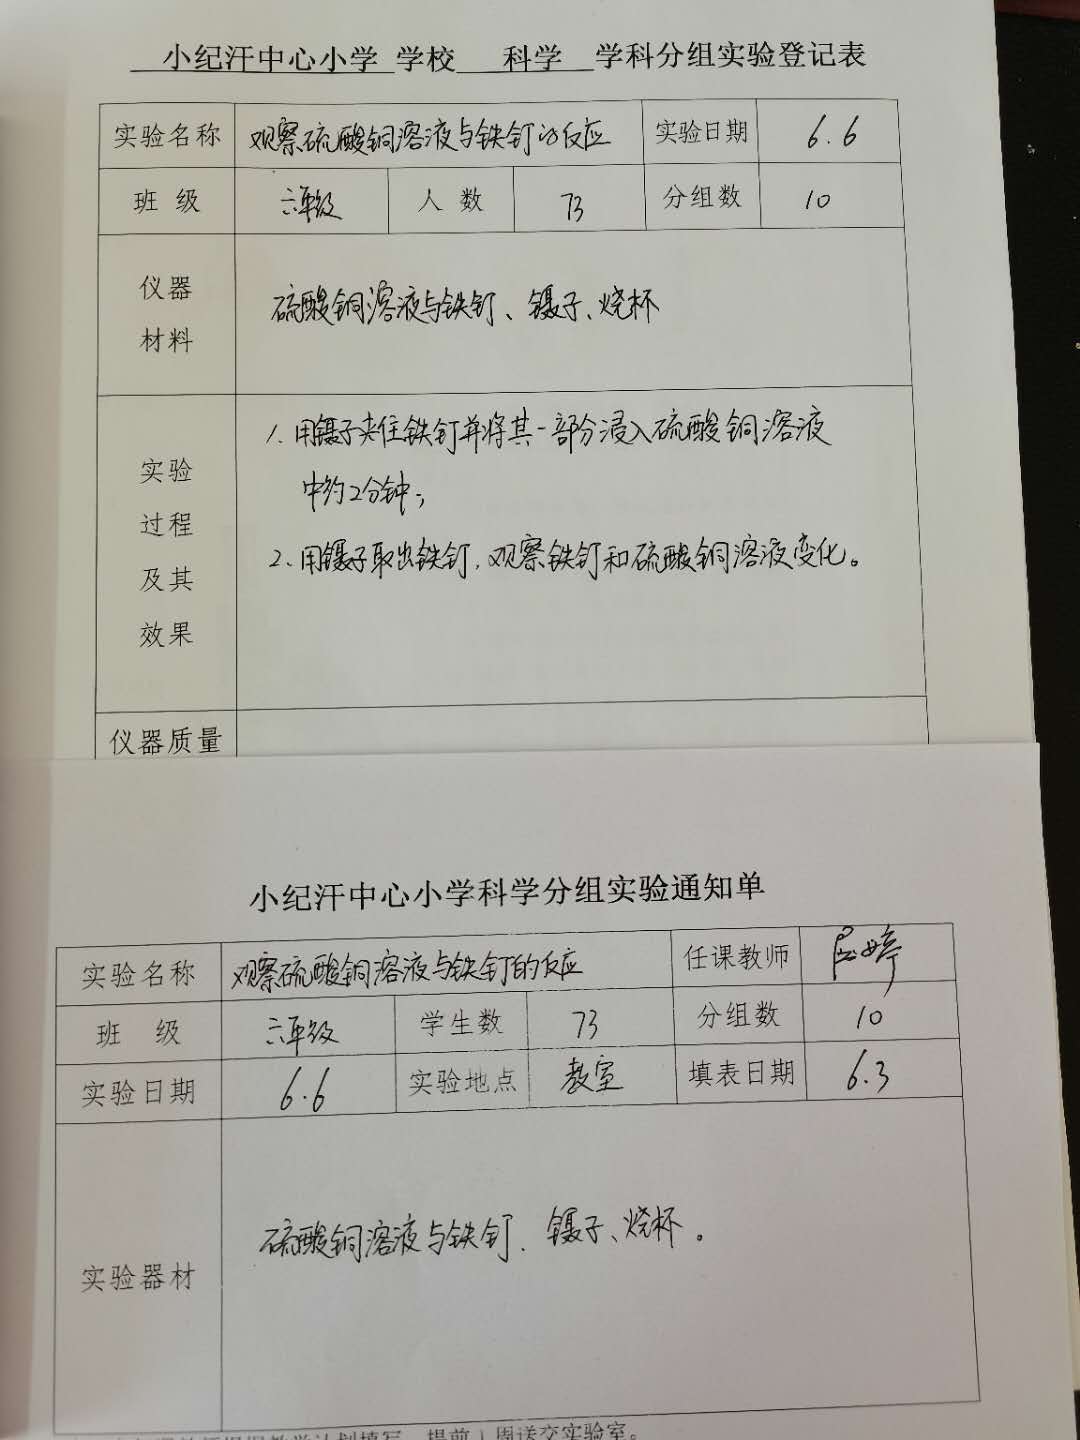 小纪汗中心小学 学校 科学 学科分组实验登记表
实验名称 观察硫酸铜溶液与铁钉的反应 实验日期 6.6
班 级 六年级 人 数 73 分组数 10
仪器
材料
硫酸铜溶液与铁钉、镊子、烧杯
实验
过程
及其
效果
1. 用镊子夹住铁钉并将其一部分浸入硫酸铜溶液
中约2分钟;
2. 用镊子取出铁钉,观察铁钉和硫酸铜溶液变化。
仪器质量
小纪汗中心小学科学分组实验通知单
实验名称 观察硫酸铜溶液与铁钉的反应 任课教师
班 级 六年级 学生数 73 分组数 10
实验日期 6.6 实验地点 教室 填表日期 6.3
实验器材 硫酸铜溶液与铁钉、镊子、烧杯。
提前1周送交实验室。